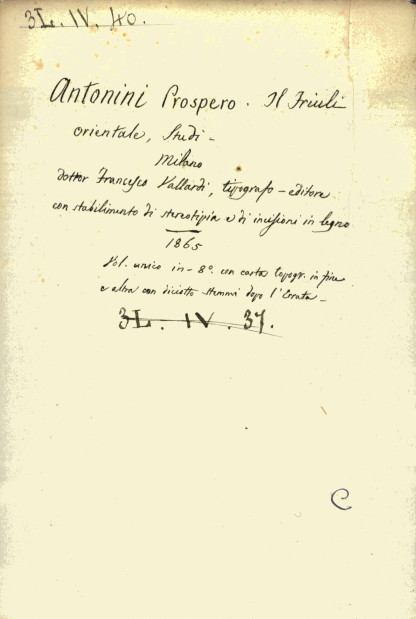 3L. IV. 40.
Antonini Prospero. Il Friuli
orientale, Studi -
Milano
dottor Francesco Vallardi, tipografo-editore
con stabilimento di stereotipia e di incisioni in legno
1865
Vol. unico in-8°. con carta topogr. in fine
e altra con diciotto stemmi dopo l'Errata -
3L. IV. 37.
C